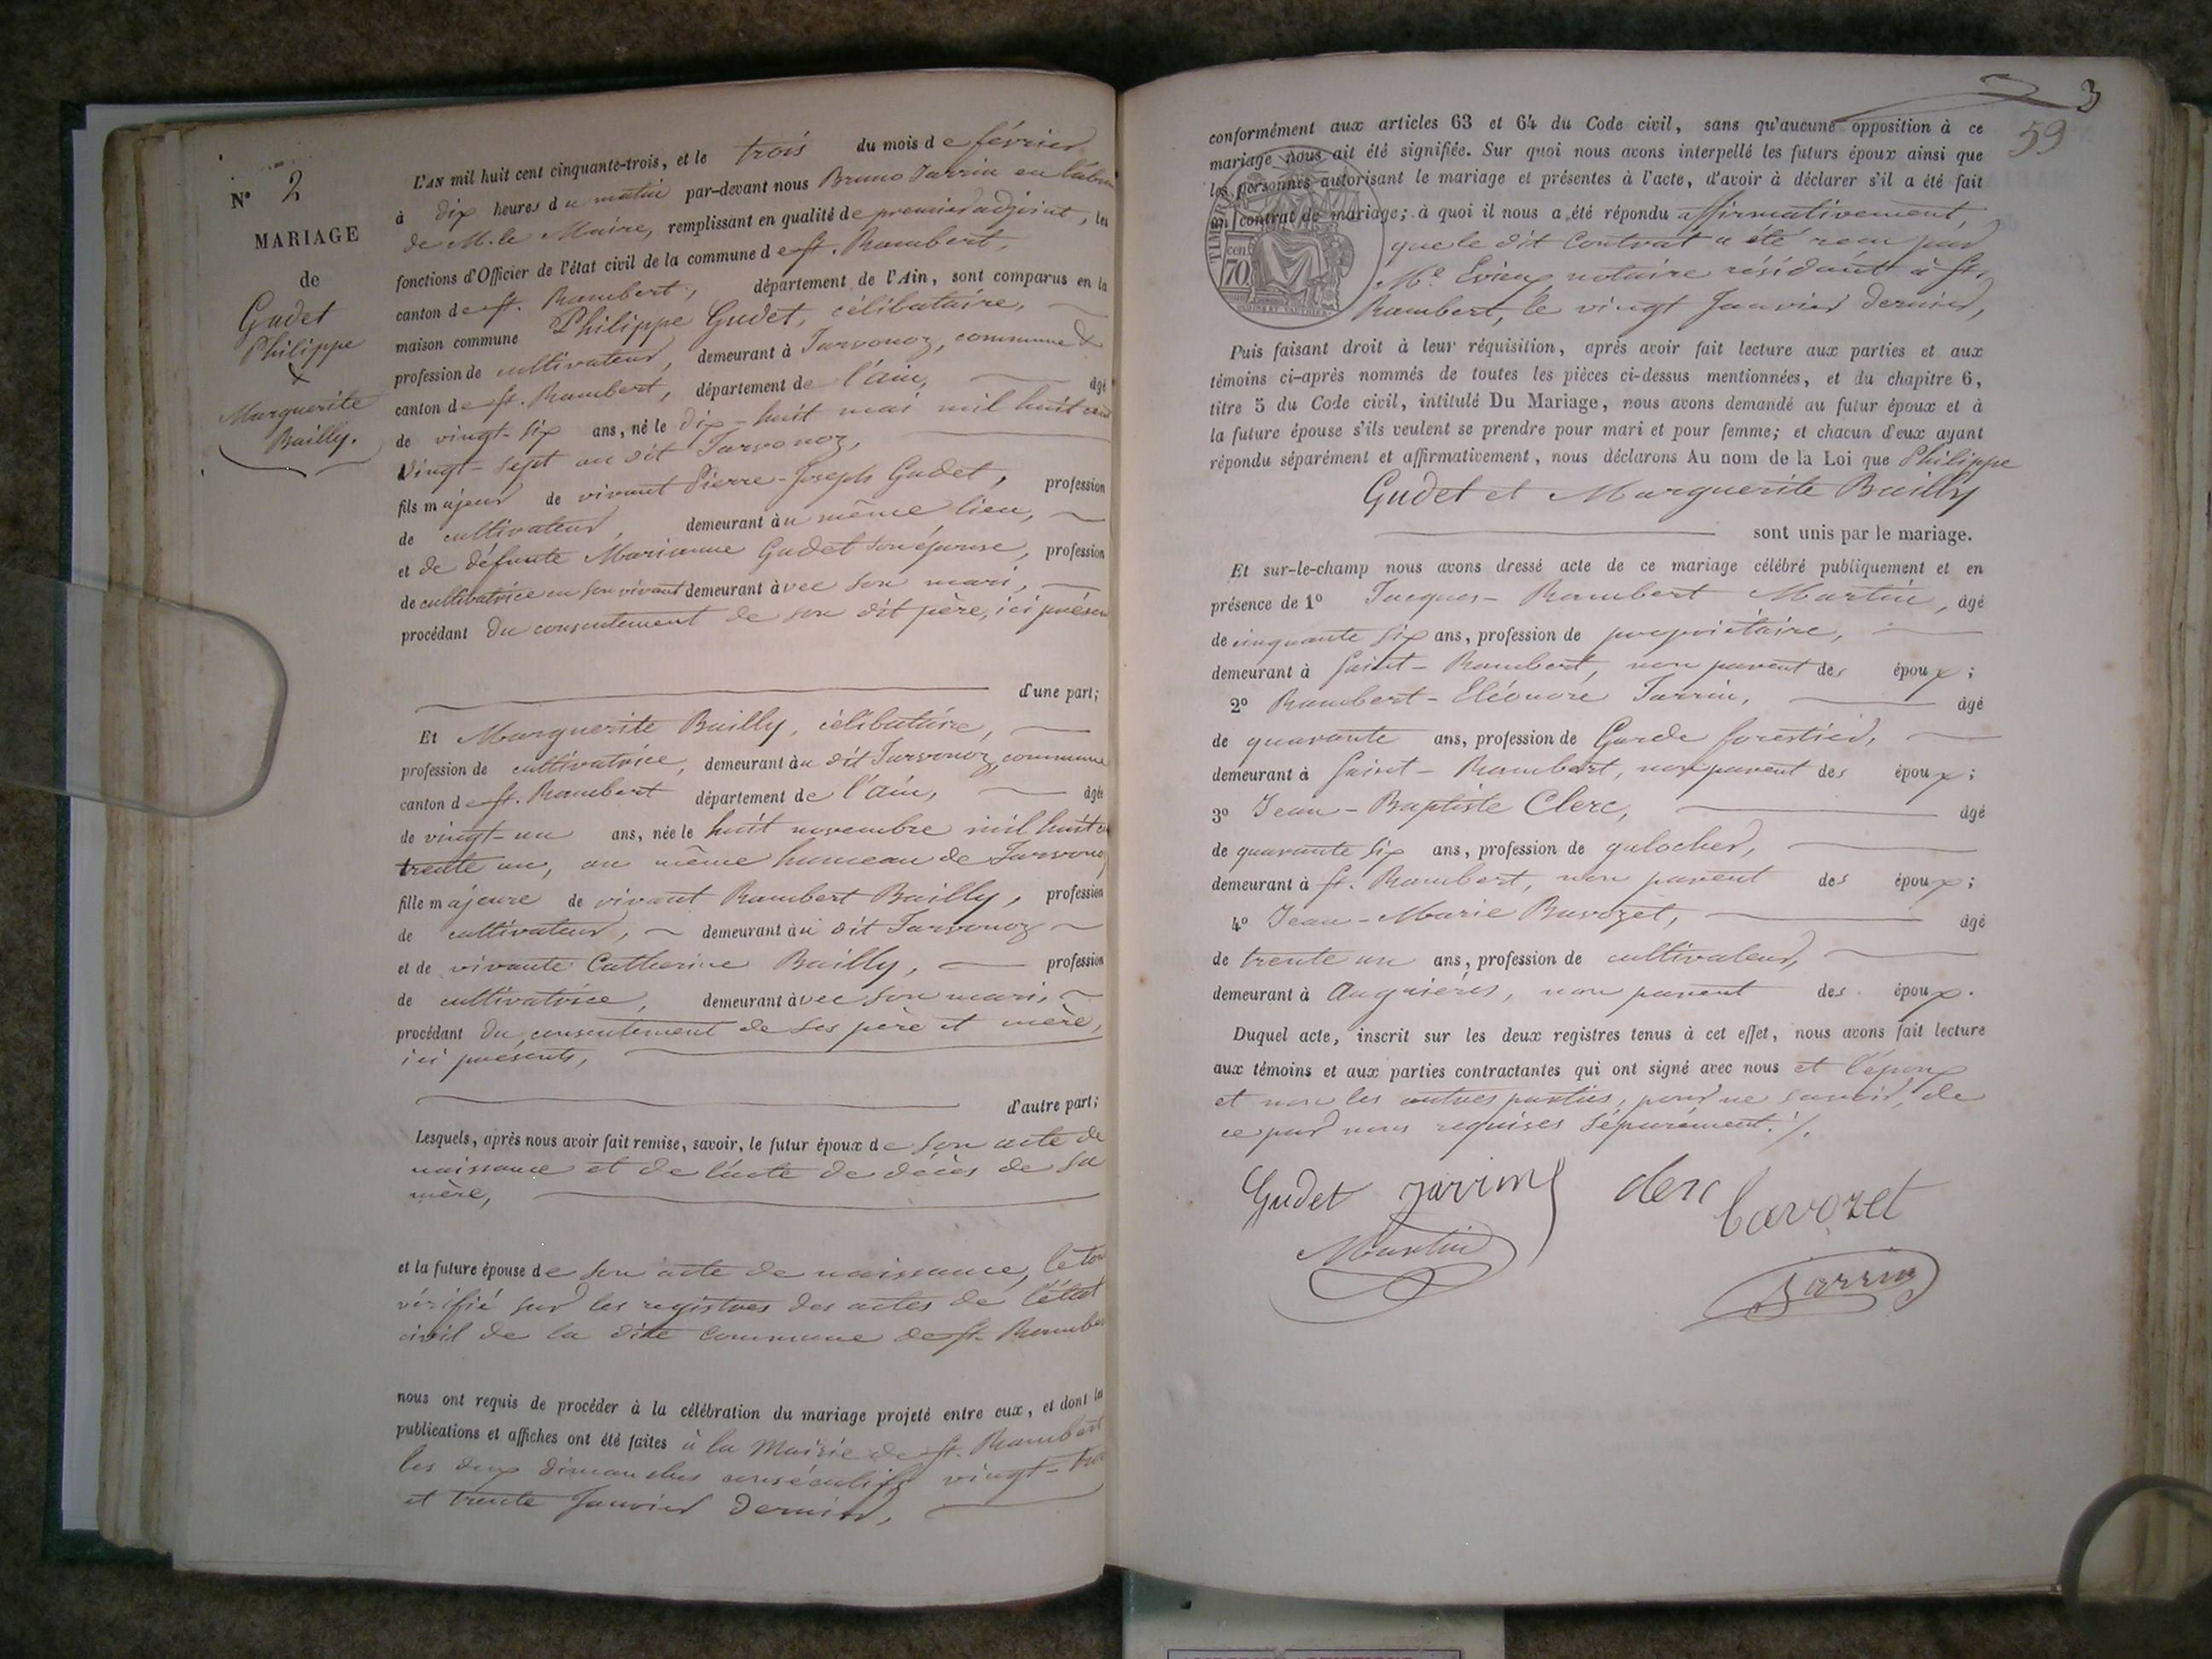 N° 2
MARIAGE
de
Gudet
Philippe
x
Marguerite
Bailly.
L'AN mil huit cent cinquante-trois, et le trois du mois de février
à dix heures du matin par-devant nous Bruno Jarrin en l'abs
de M. le Maire, remplissant en qualité de premier adjoint, les
fonctions d'Officier de l'état civil de la commune de St. Rambert,
canton de St. Rambert, département de l'Ain, sont comparus en la
maison commune Philippe Gudet, célibataire,
profession de cultivateur, demeurant à Javronoz, commune &
canton de St. Rambert, département de l'ain, âgé
de vingt-six ans, né le dix-huit mai mil huit cent
vingt-sept au dit Javronoz,
fils majeur de vivant Pierre-Joseph Gudet, profession
de cultivateur, demeurant au même lieu,
et de défunte Marianne Gudet son épouse, profession
de cultivatrice en son vivant demeurant avec son mari,
procédant du consentement de son dit père, ici présen
d'une part;
Et Marguerite Bailly, célibataire,
profession de cultivatrice, demeurant au dit Javronoz, commune
canton de St. Rambert département de l'ain, âgée
de vingt-un ans, née le huit novembre mil huit c
trente un, au même hameau de Javronoz
fille majeure de vivant Rambert Bailly, profession
de cultivateur, demeurant au dit Javronoz
et de vivante Catherine Bailly, profession
de cultivatrice, demeurant avec son mari,
procédant du consentement de ses père et mère,
ici présents,
d'autre part;
Lesquels, après nous avoir fait remise, savoir, le futur époux de son acte de
naissance et de l'acte de décès de sa
mère,
et la future épouse de son acte de naissance, le tou
vérifié sur les registres des actes de l'état
civil de la dite commune de St. Ramber
nous ont requis de procéder à la célébration du mariage projeté entre eux, et dont les
publications et affiches ont été faites à la Mairie de St. Rambert
les deux dimanches consécutifs vingt-trois
et trente Janvier dernier,
3
59
conformément aux articles 63 et 64 du Code civil, sans qu'aucune opposition à ce
mariage nous ait été signifiée. Sur quoi nous avons interpellé les futurs époux ainsi que
les personnes autorisant le mariage et présentes à l'acte, d'avoir à déclarer s'il a été fait
un contrat de mariage; à quoi il nous a été répondu affirmativement,
que le dit Contrat a été reçu par
Me. Evieux notaire résidant à St.
Rambert, le vingt Janvier dernier,
TIMBRE
cen
70
Puis faisant droit à leur réquisition, après avoir fait lecture aux parties et aux
témoins ci-après nommés de toutes les pièces ci-dessus mentionnées, et du chapitre 6,
titre 5 du Code civil, intitulé Du Mariage, nous avons demandé au futur époux et à
la future épouse s'ils veulent se prendre pour mari et pour femme; et chacun d'eux ayant
répondu séparément et affirmativement, nous déclarons Au nom de la Loi que Philippe
Gudet et Marguerite Bailly
sont unis par le mariage.
Et sur-le-champ nous avons dressé acte de ce mariage célébré publiquement et en
présence de 1° Jacques-Rambert Martin, âgé
de cinquante six ans, profession de propriétaire,
demeurant à Saint-Rambert, non parent des époux;
2° Rambert-Eléonore Jarrin, âgé
de quarante ans, profession de Garde forestier,
demeurant à Saint-Rambert, non parent des époux;
3° Jean-Baptiste Clerc, âgé
de quarante six ans, profession de galocher,
demeurant à St. Rambert, non parent des époux;
4° Jean-Marie Bavozet, âgé
de trente un ans, profession de cultivateur,
demeurant à Angrières, non parent des époux.
Duquel acte, inscrit sur les deux registres tenus à cet effet, nous avons fait lecture
aux témoins et aux parties contractantes qui ont signé avec nous et l'époux
et non les autres parties, pour ne savoir, de
ce par nous requises séparément. /.
Gudet Jarrin Clerc
bavozet
Martin
Jarrin